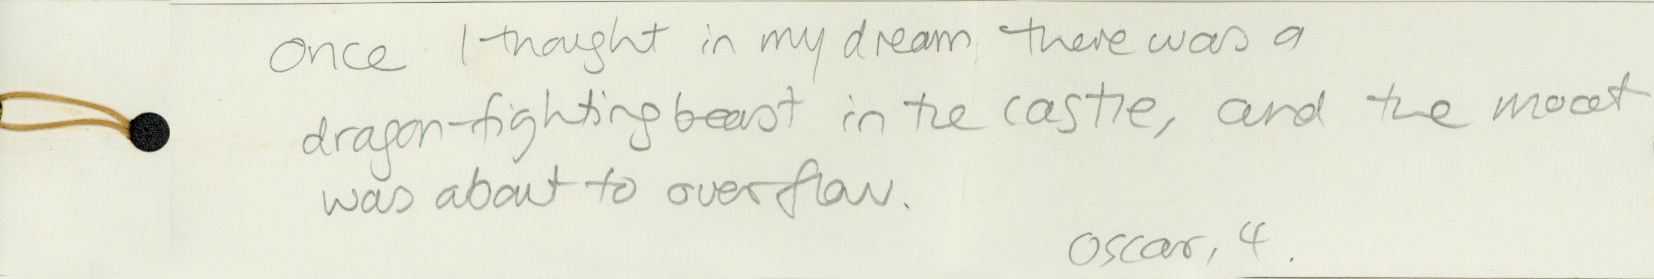 Once I thought in my dream there was a
dragon-fighting beast in the castle, and the moat
was about to overflow.
Oscar, 4.